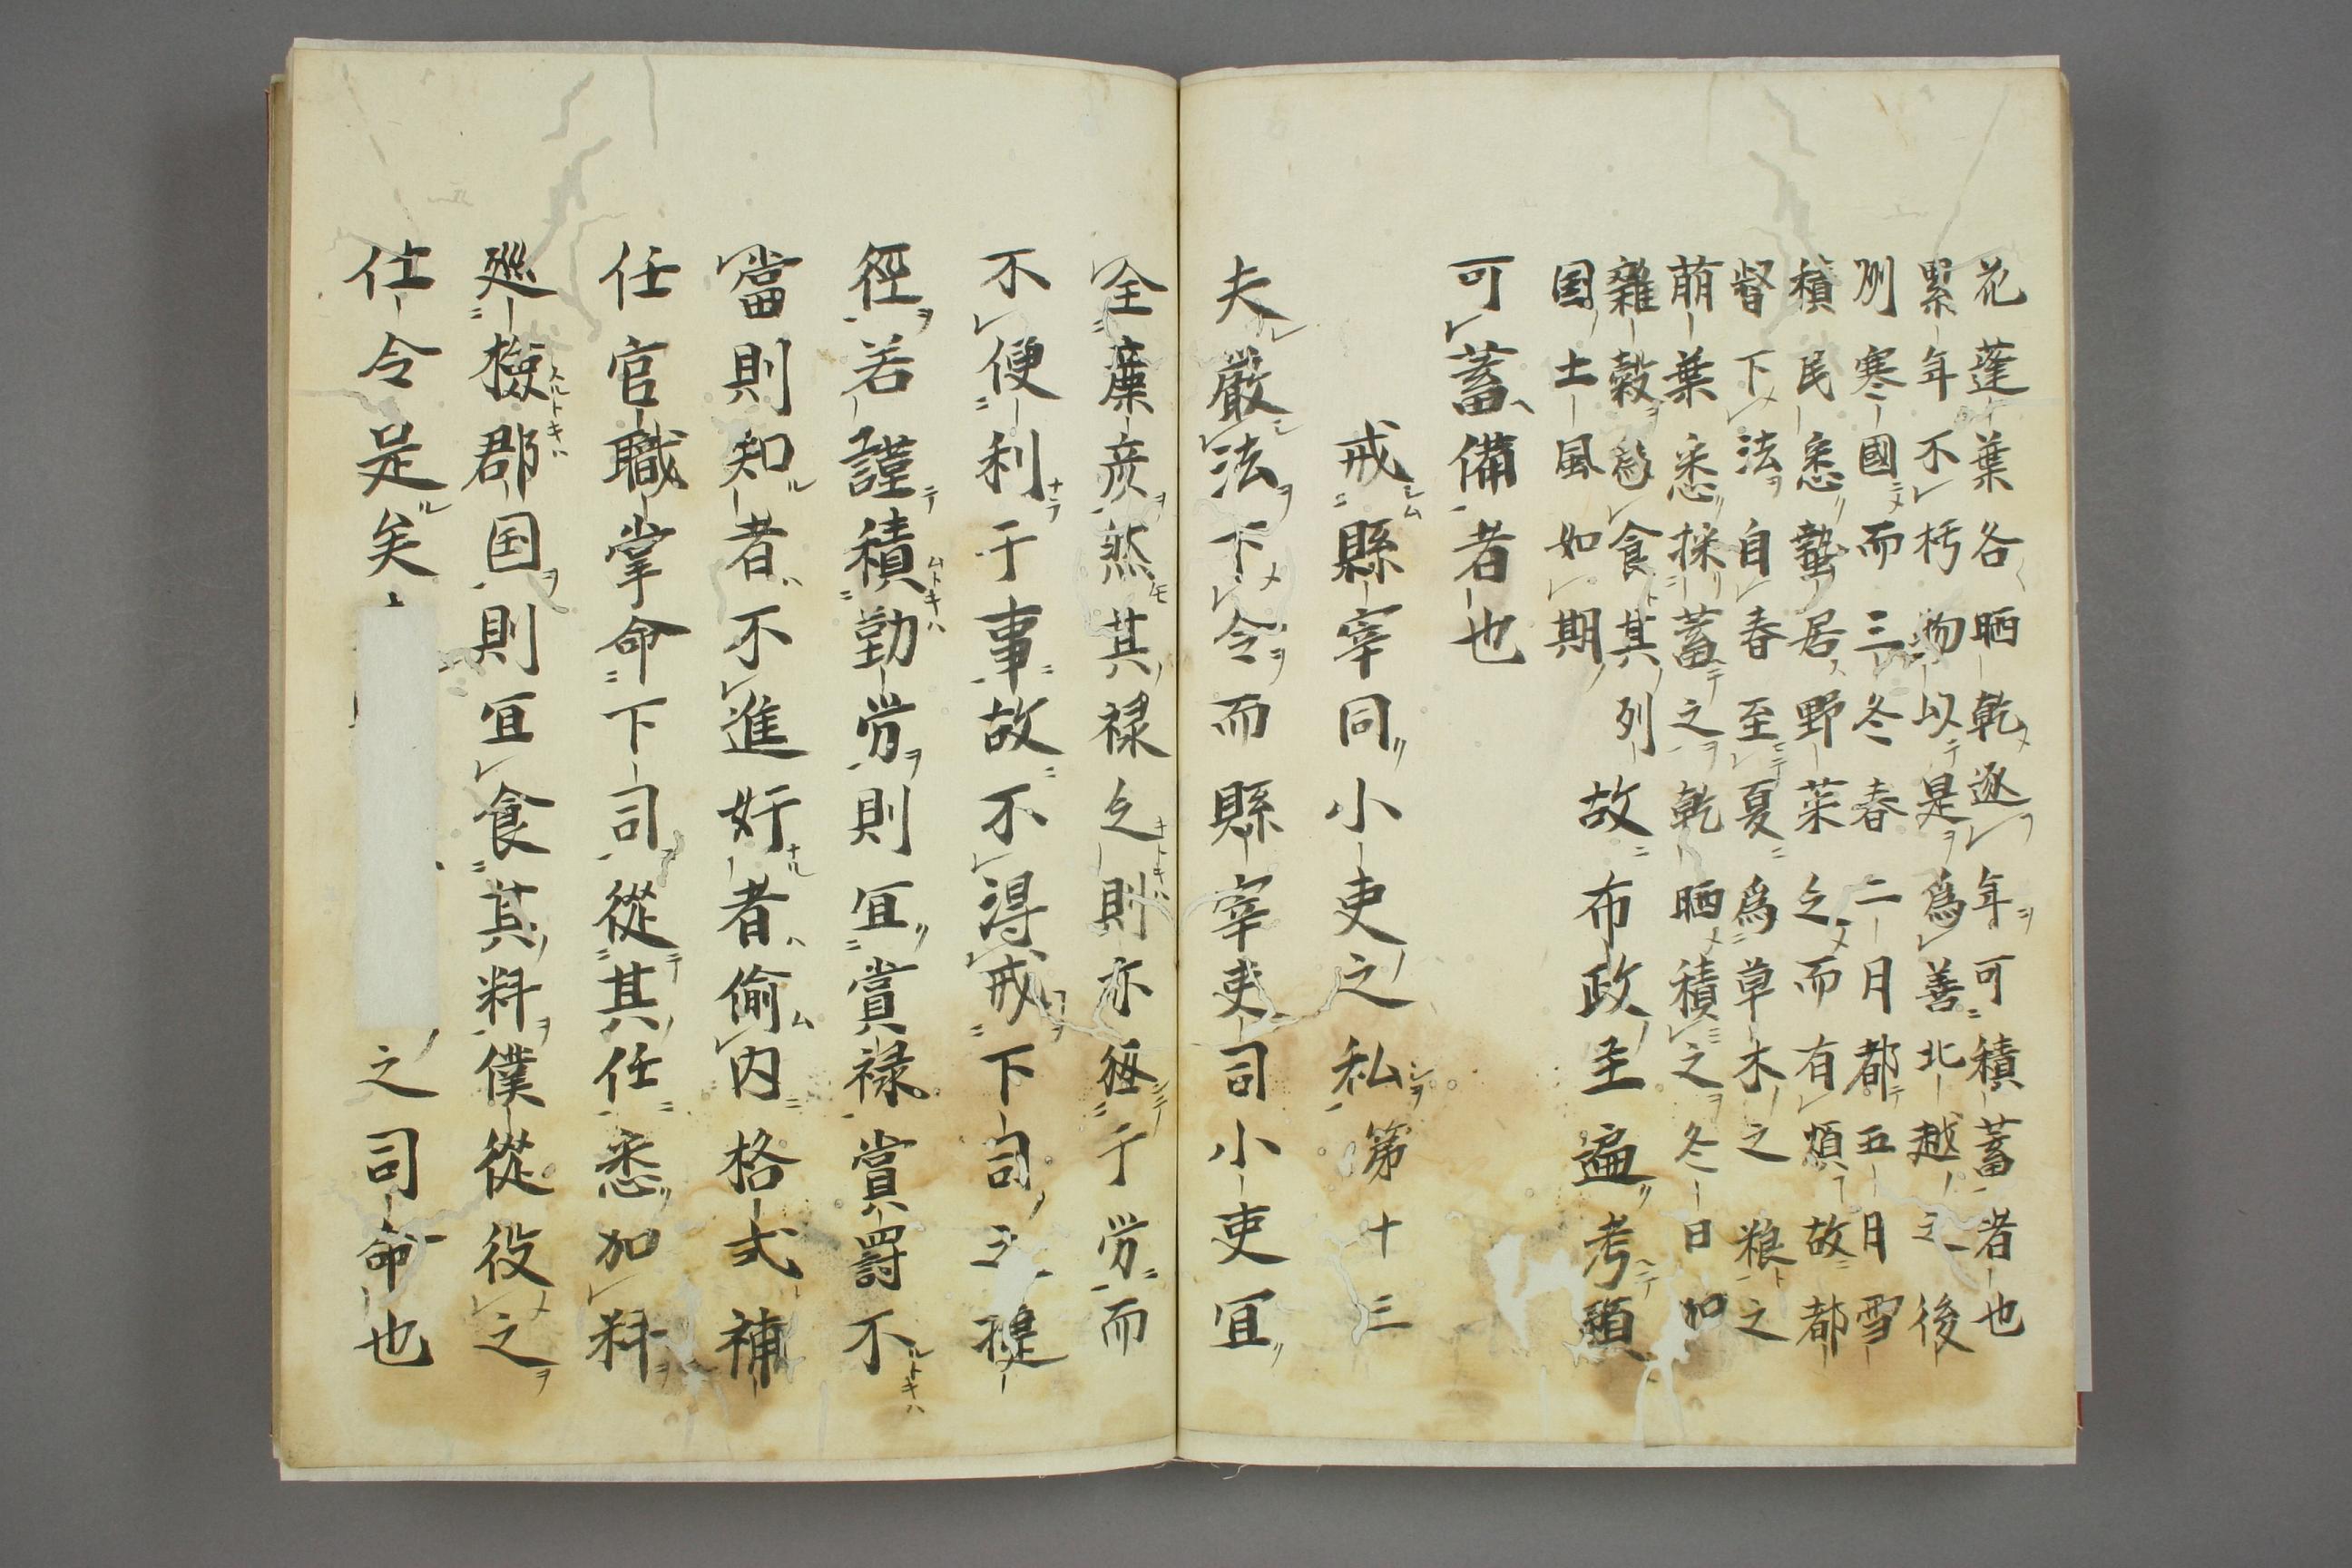 花蓬葉各晒乾逐年可積蓄者也
累年不朽物以是為善北越之後
列寒國而三冬春二月都五月雪
積民悉蟄居野菜乏而有煩故都
督下法自春至夏為草木之粮之
萌葉悉採蓄之乾晒積之冬日加
雜穀食其列
国土風如期
故布政主遍考頭
可蓄備者也
戒縣宰同小吏之私第十三
夫嚴法下令而縣宰吏司小吏宜
全廉彦然其禄乏則亦経于労而
不便利于事故不得戒下司
径若謹積勤労則宜賞禄賞爵不
當則知者不進奸者偷内格式補
任官職掌命下司従其任悉加料
廵檢郡国則宜食其料僕従役之
仕令是矣
之司命也